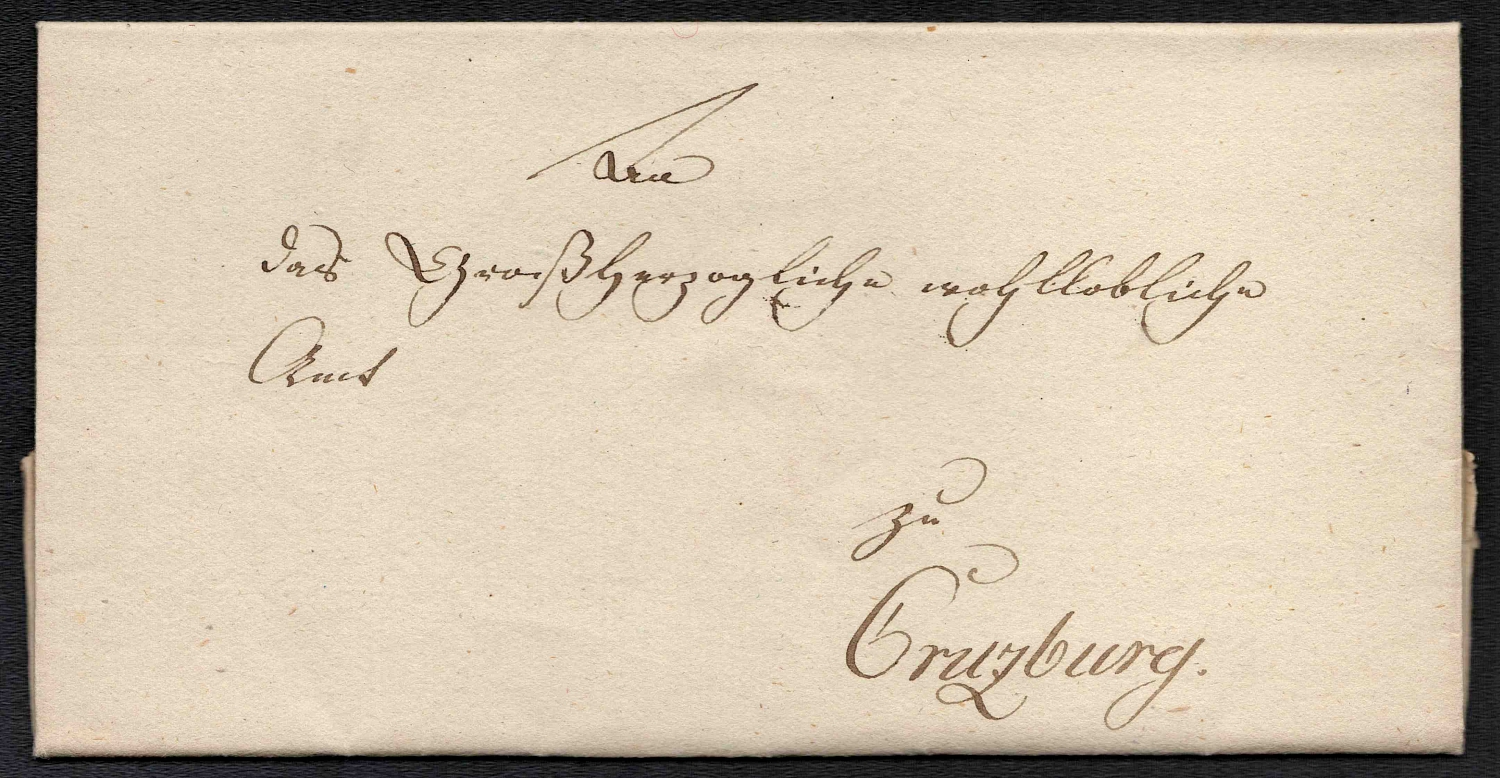 An
das Großherzogliche wohllobliche
Amt
zu
Cruzburg.